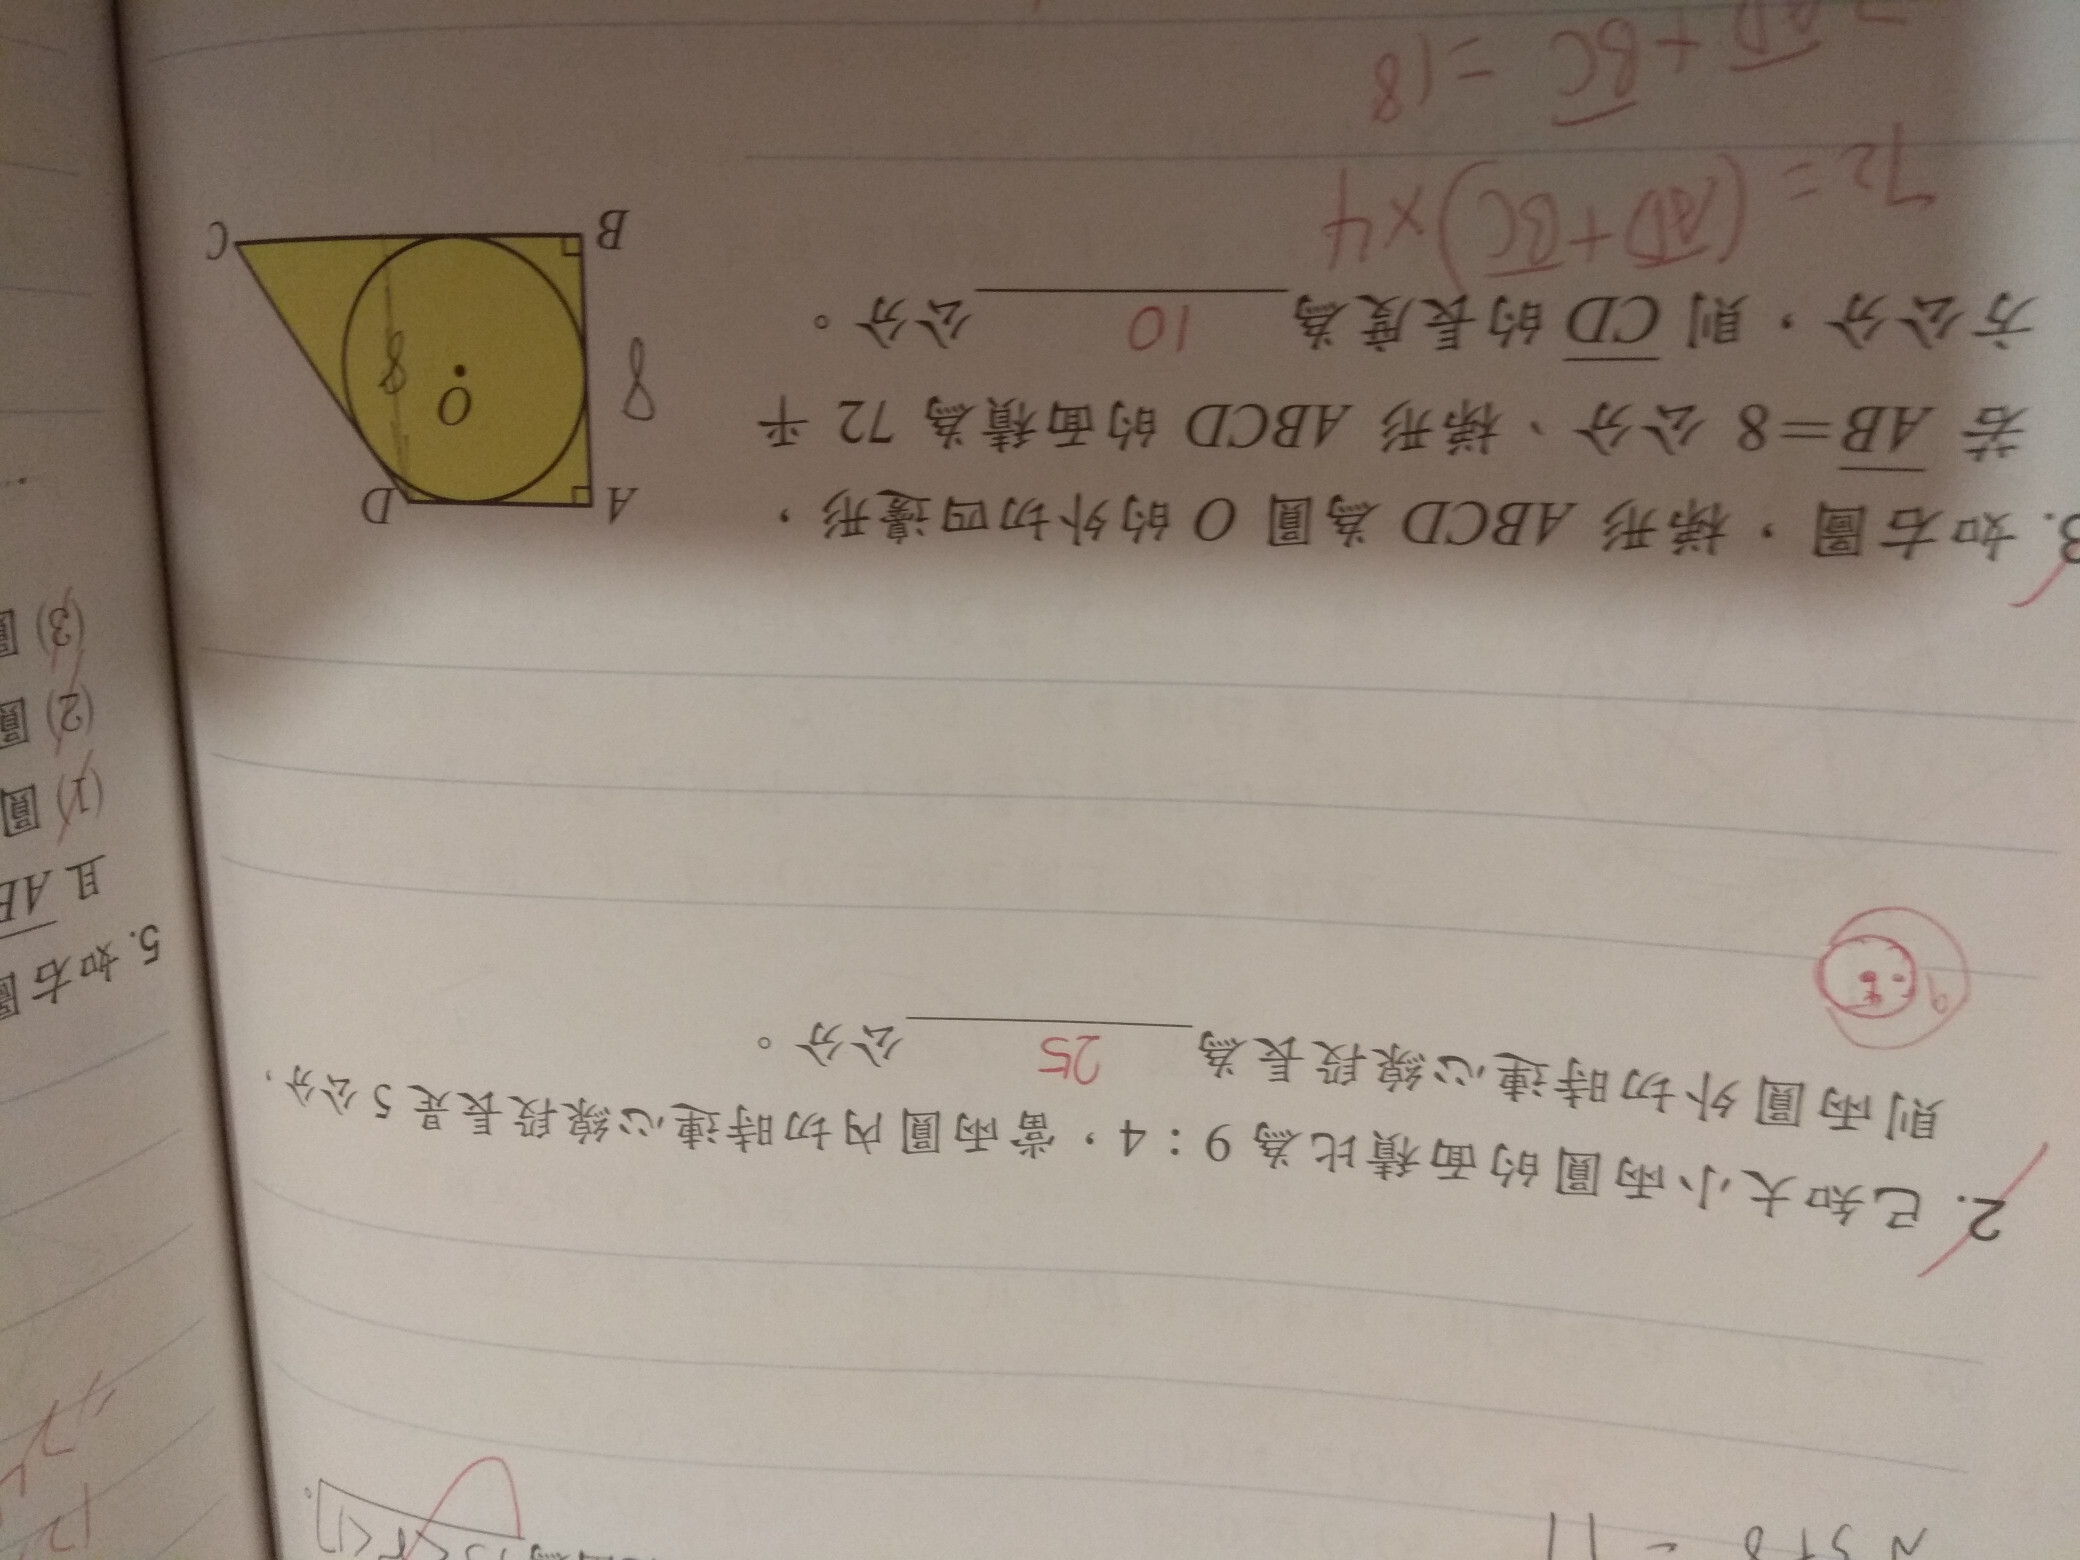 2. 已知大小兩圓的面積比為 9：4，當兩圓內切時連心線段長是 5 公分，
則兩圓外切時連心線段長為 25 公分。
9
3. 如右圖，梯形 ABCD 為圓 O 的外切四邊形，
若 AB=8 公分、梯形 ABCD 的面積為 72 平
方公分，則 CD 的長度為 10 公分。
A
D
O
8
8
B
C
72 = (AD+BC)×4
AD+BC =18
5. 如右
且 A
(1) 圓
(2) 圓
(3) 圓